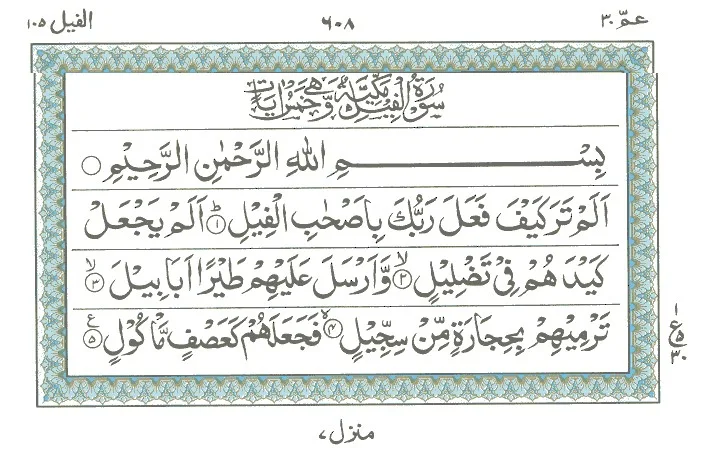 عمّ ٣٠
٦٠٨
الفيل ١٠٥
سُوْرَةُ الْفِيْلِ مَكِّيَّةٌ وَّهِيَ خَمْسُ اٰيَاتٍ
بِسْمِ اللهِ الرَّحْمٰنِ الرَّحِيْمِ
اَلَمْ تَرَ كَيْفَ فَعَلَ رَبُّكَ بِاَصْحٰبِ الْفِيْلِ ؕ﴿۱﴾ اَلَمْ يَجْعَلْ
كَيْدَ هُمْ فِيْ تَضْلِيْلٍ ۙ﴿۲﴾ وَّاَرْسَلَ عَلَيْهِمْ طَيْرًا اَبَابِيْلَ ۙ﴿۳﴾
تَرْمِيْهِمْ بِحِجَارَةٍ مِّنْ سِجِّيْلٍ ﴿۴﴾ فَجَعَلَهُمْ كَعَصْفٍ مَّاْكُوْلٍ ﴿۵﴾ ع
١
ع ٥
٣٠
منزل ٧